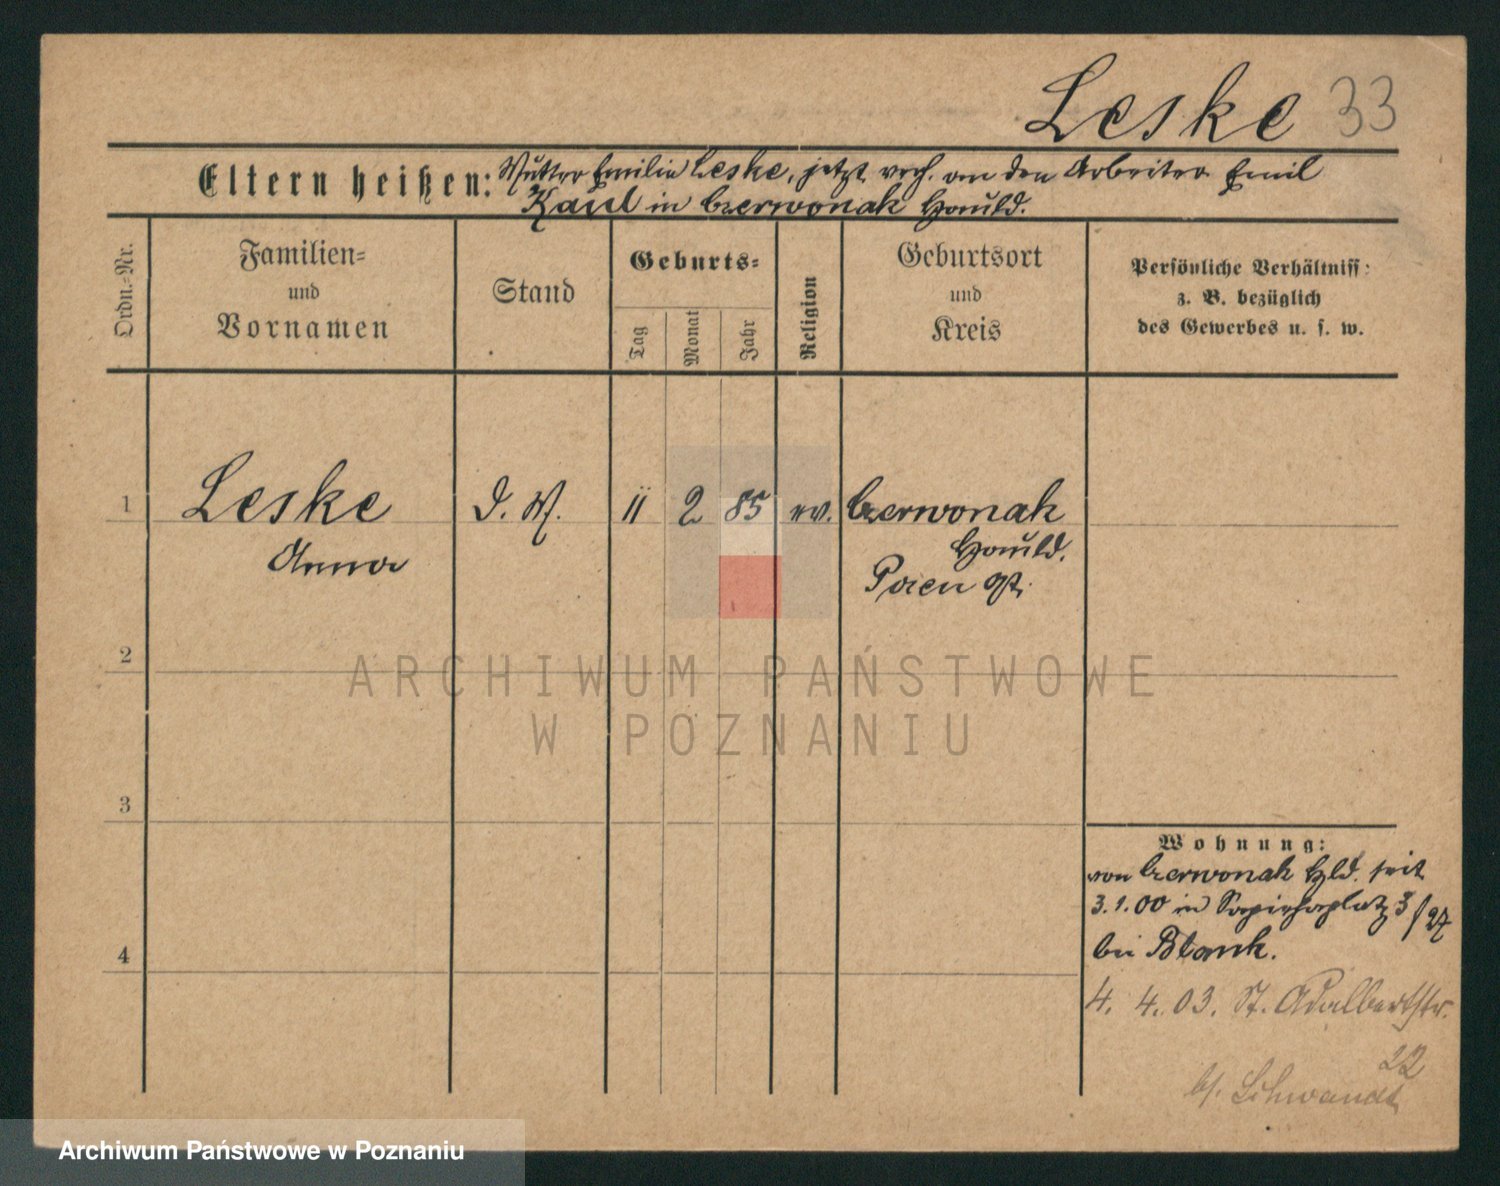 Leske 33
Eltern heißen: Mutter Emilie Leske, jetzt verh. an den Arbeiter Emil
Kaul in Czerwonak Hauld.
Ordn.-Nr.
Familien-
und
Vornamen
Stand
Geburts-
Tag
Monat
Jahr
Religion
Geburtsort
und
Kreis
Persönliche Verhältniss:
z. B. bezüglich
des Gewerbes u. s. w.
1 Leske D. M. 11 2 85 ev. Czerwonak
Hauld.
Anna
Posen Ost.
2
ARCHIWUM PAŃSTWOWE
W POZNANIU
3
Wohnung:
von Czerwonak Hld. seit
3.1.00 in Sapiehaplatz 3/27
bei Blank.
4
4. 4. 03. St. Adalbertstr.
22
b/. Schwandt
Archiwum Państwowe w Poznaniu